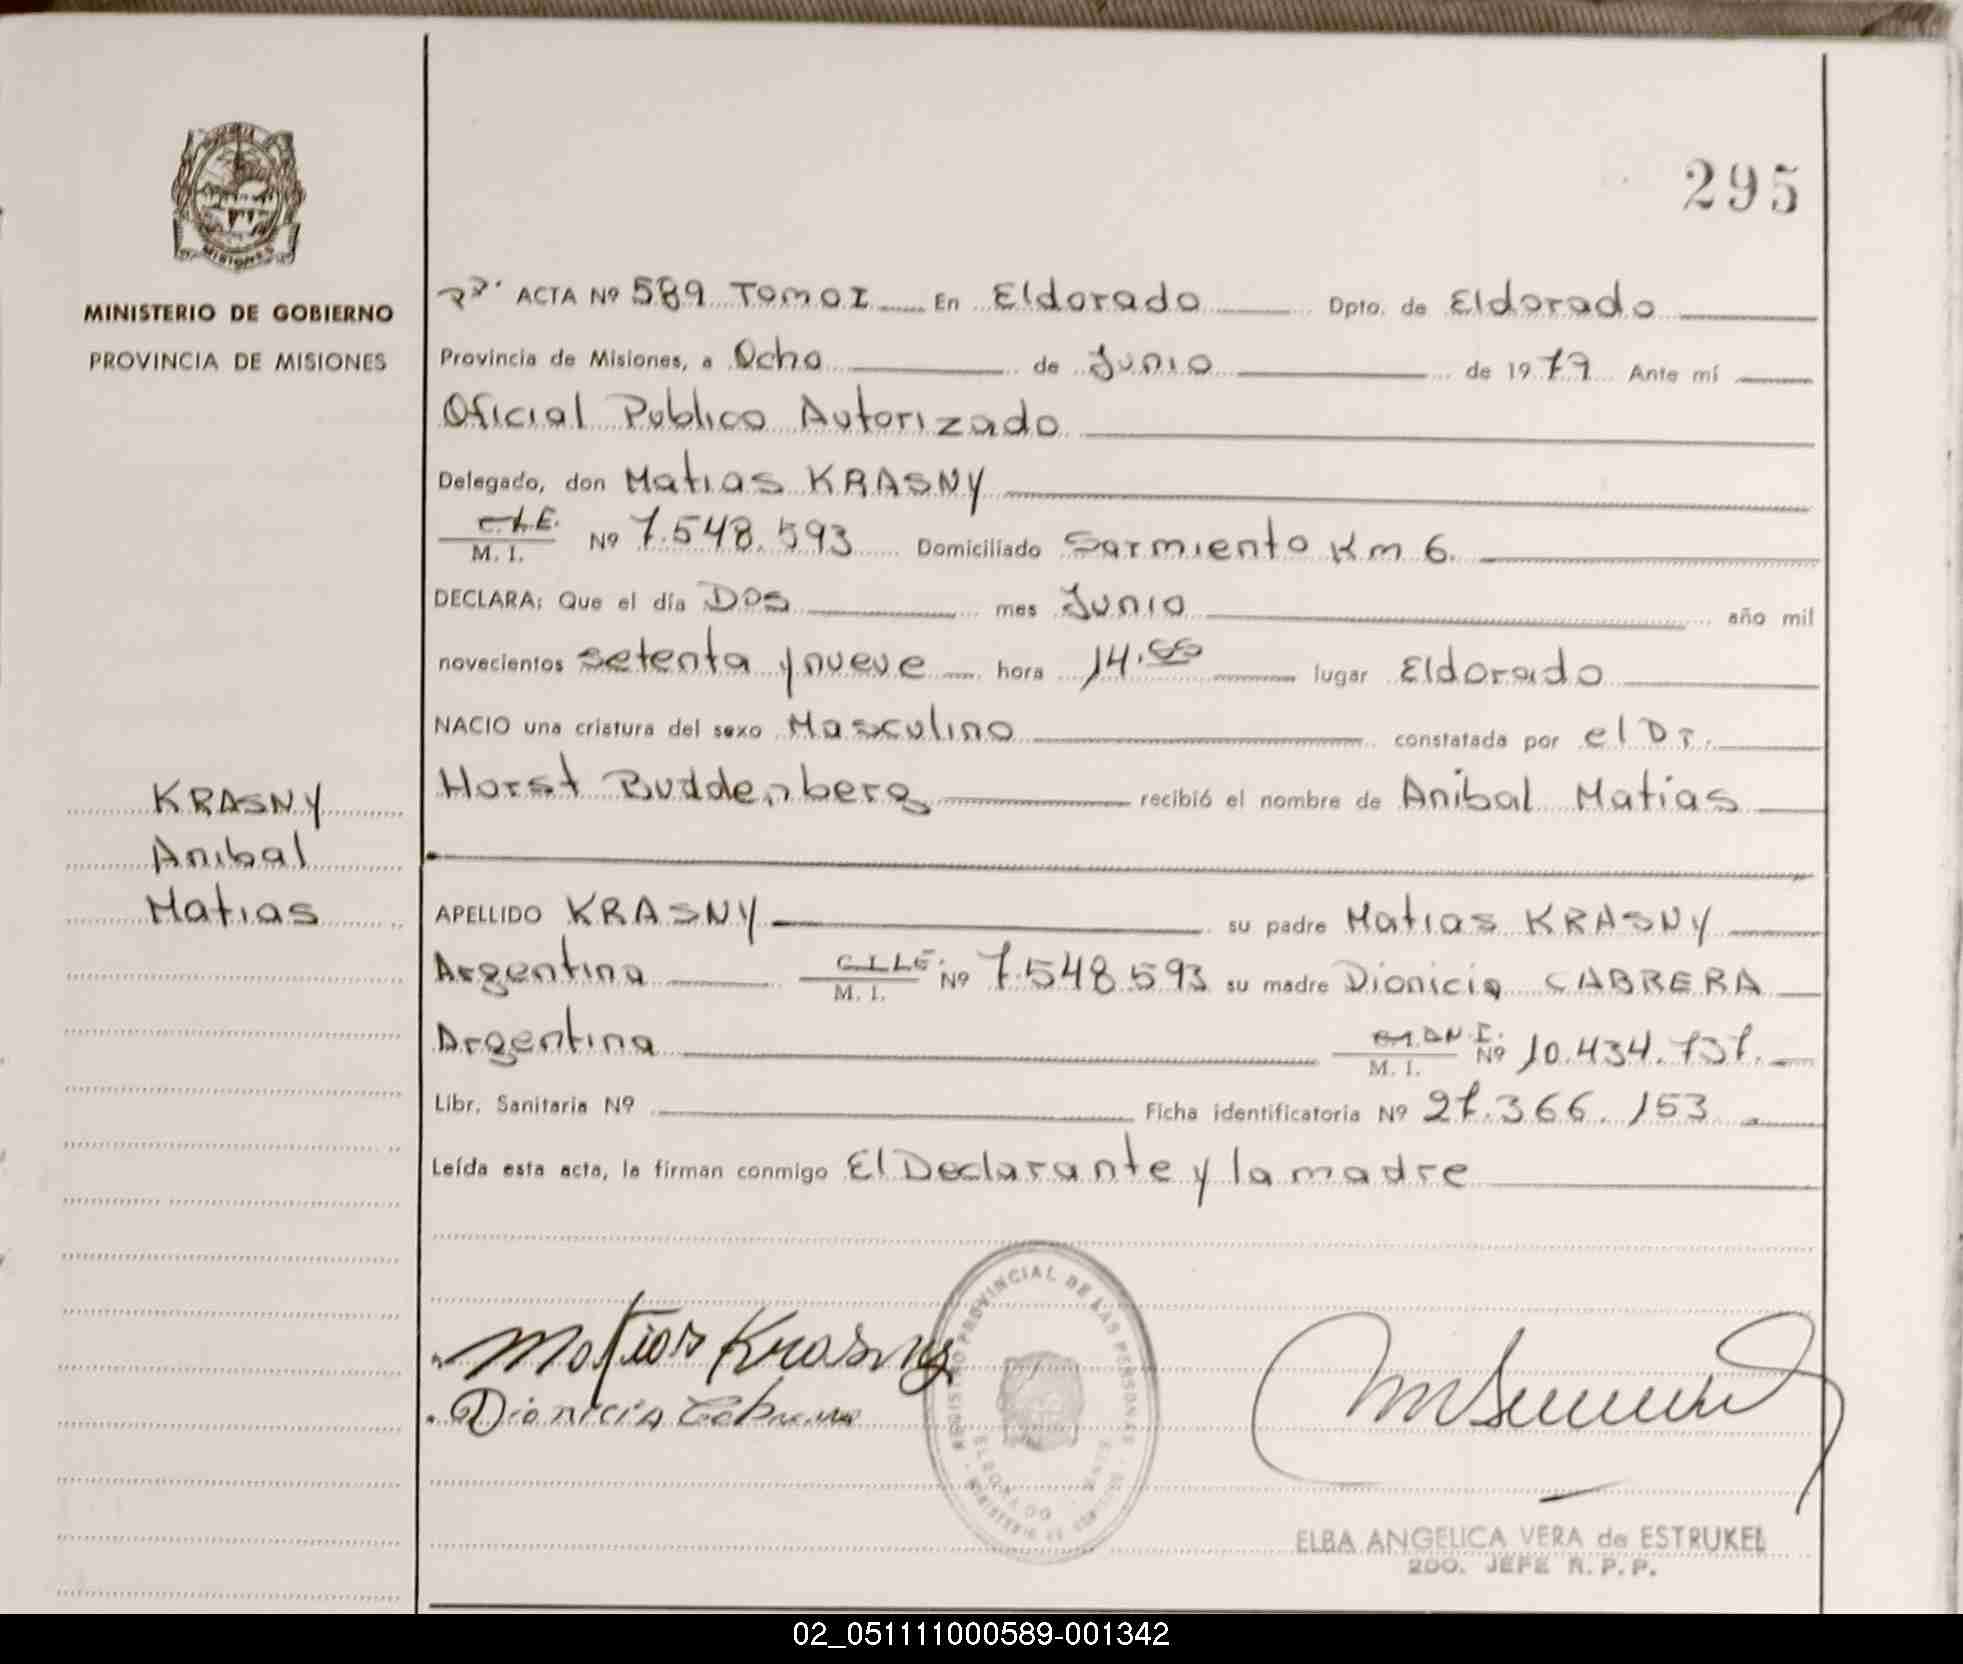 295
MINISTERIO DE GOBIERNO
PROVINCIA DE MISIONES
ACTA Nº 589 Tomo I En Eldorado Dpto. de Eldorado
Provincia de Misiones, a Ocho de Junio de 1979 Ante mí
Oficial Publico Autorizado
Delegado, don Matias KRASNY
M. I. Nº 7.548.593 Domiciliado Sarmiento Km 6.
DECLARA: Que el día Dos mes Junio año mil
novecientos setenta y nueve hora 14.00 lugar Eldorado
NACIO una criatura del sexo Masculino constatada por el Dr.
Horst Buddenberg recibió el nombre de Anibal Matias
KRASNY
Anibal
Matias
APELLIDO KRASNY su padre Matias KRASNY
Argentina M. I. Nº 7.548.593 su madre Dionicia CABRERA
Argentina M. I. Nº 10.434.737.
Libr. Sanitaria Nº Ficha identificatoria Nº 27.366.153
Leída esta acta, la firman conmigo El Declarante y la madre
Matias Krasny
Dionicia Cabrera
REGISTRO PROVINCIAL DE LAS PERSONAS
ELDORADO
ELBA ANGELICA VERA de ESTRUKEL
2DO. JEFE R.P.P.
02_051111000589-001342